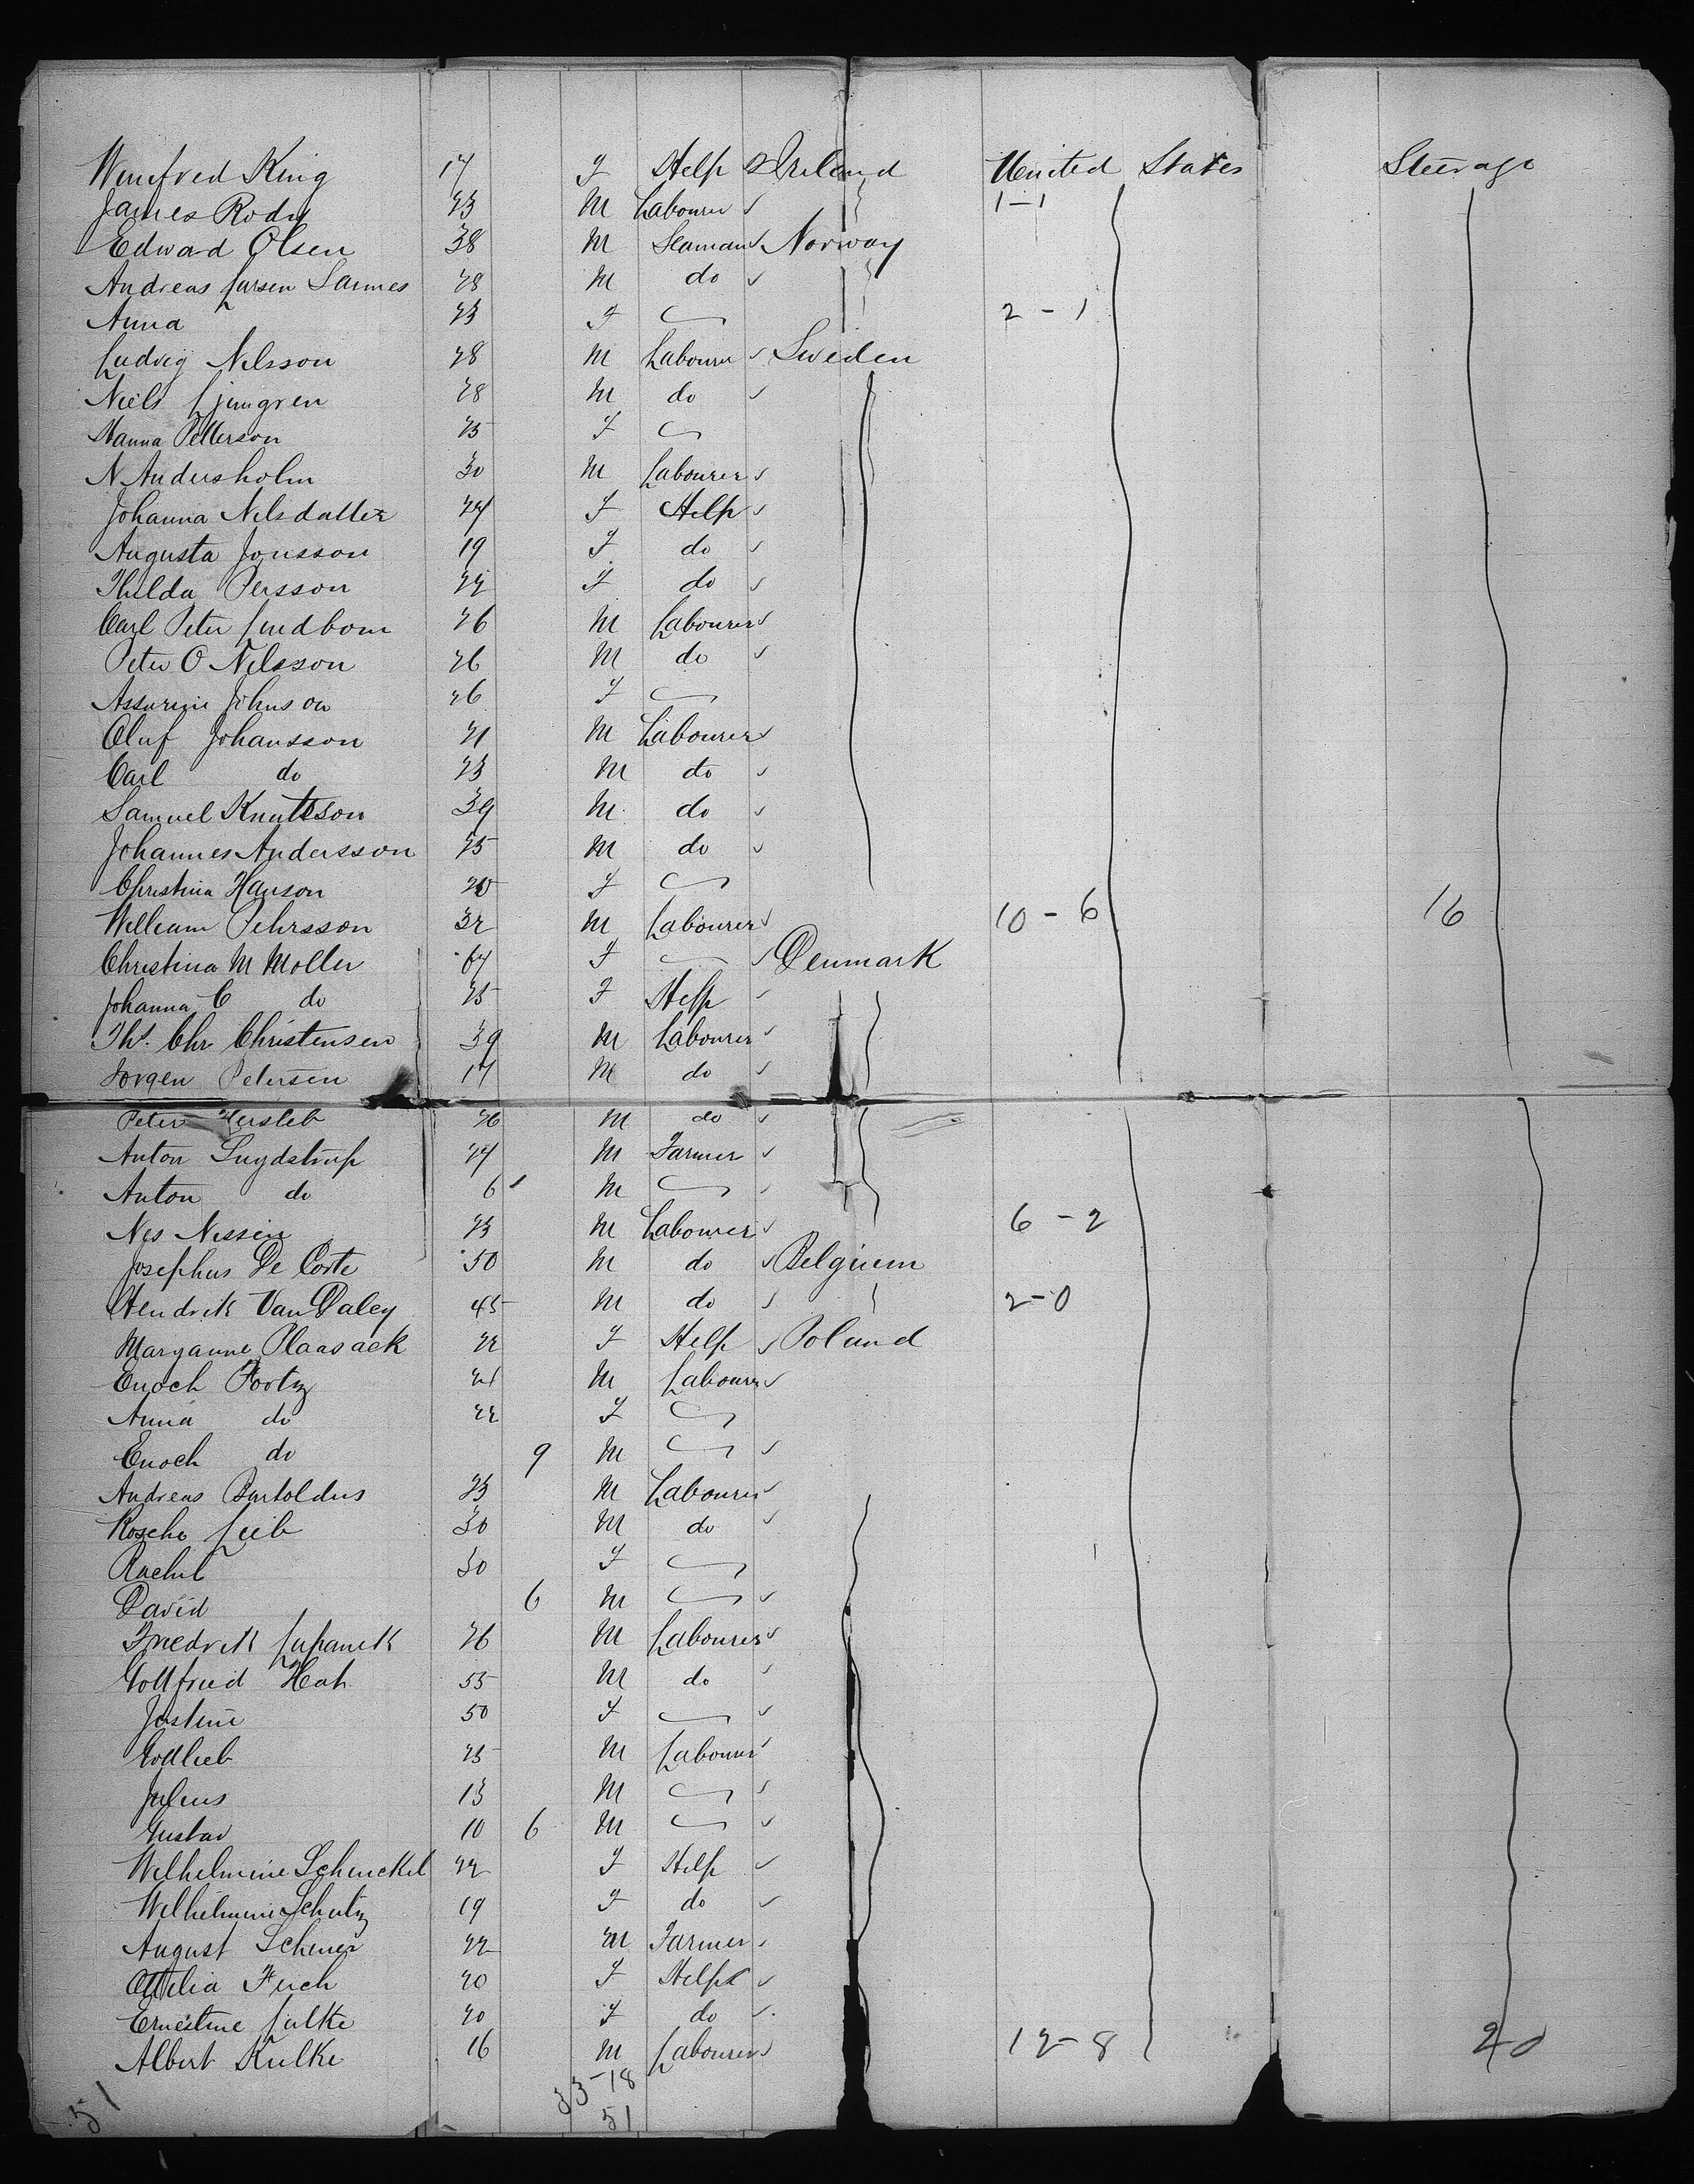 Winefred King 17 F Help Ireland United States Steerage
James Rody 23 M Labourer 1-1
Edward Olsen 38 M Seaman Norway
Andreas Larsen Sannes 28 M do
Anna 23 F 2-1
Ludvig Nilsson 28 M Labourer Sweden
Niels Ljungren 28 M do
Hanna Petterson 25 F
N Andersholm 30 M Labourer
Johanna Nilsdatter 24 F Help
Augusta Jonsson 19 F do
Thilda Persson 22 F do
Carl Peter Lindbom 26 M Labourer
Peter O Nilsson 26 M do
Johnson 26 F
Oluf Johansson 21 M Labourer
Carl do 23 M do
Samuel Knutsson 39 M do
Johannes Andersson 25 M do
Christina Hanson 20 F
William Pehrsson 32 M Labourer 10-6 16
Christina M Moller 64 F Denmark
Johanna C do 25 F Help
Ths. Chr Christensen 39 M Labourer
Jorgen Petersen 17 M do
Peter Hersleb 26 M do
Anton Lugdstrup 24 M Farmer
Anton do 6 M
Nis Nissen 23 M Labourer 6-2
Josephus De Corte 50 M do Belgium
Hendrik Van Daley 45 M do 2-0
Maryanne Plaasack 22 F Help Poland
Enoch Footz 21 M Labourer
Anna do 22 F
Enoch do 9 M
Andreas Bartoldus 23 M Labourer
Rosche Leib 30 M do
Rachel 30 F
David 6 M
Friedrik Lupanek 26 M Labourer
Gottfried Hah 55 M do
Justine 50 F
Gottlieb 25 M Labourer
Julius 13 M
Gustav 10 6 M
Wilhelmine Schenckel 22 F Help
Wilhelmine Schulz 19 F do
August Scheuer 22 M Farmer
Ottilia Fuch 20 F Help
Ernestine Julke 20 F do
Albert Kulke 16 M Labourer 12-8 20
33-18
51 51